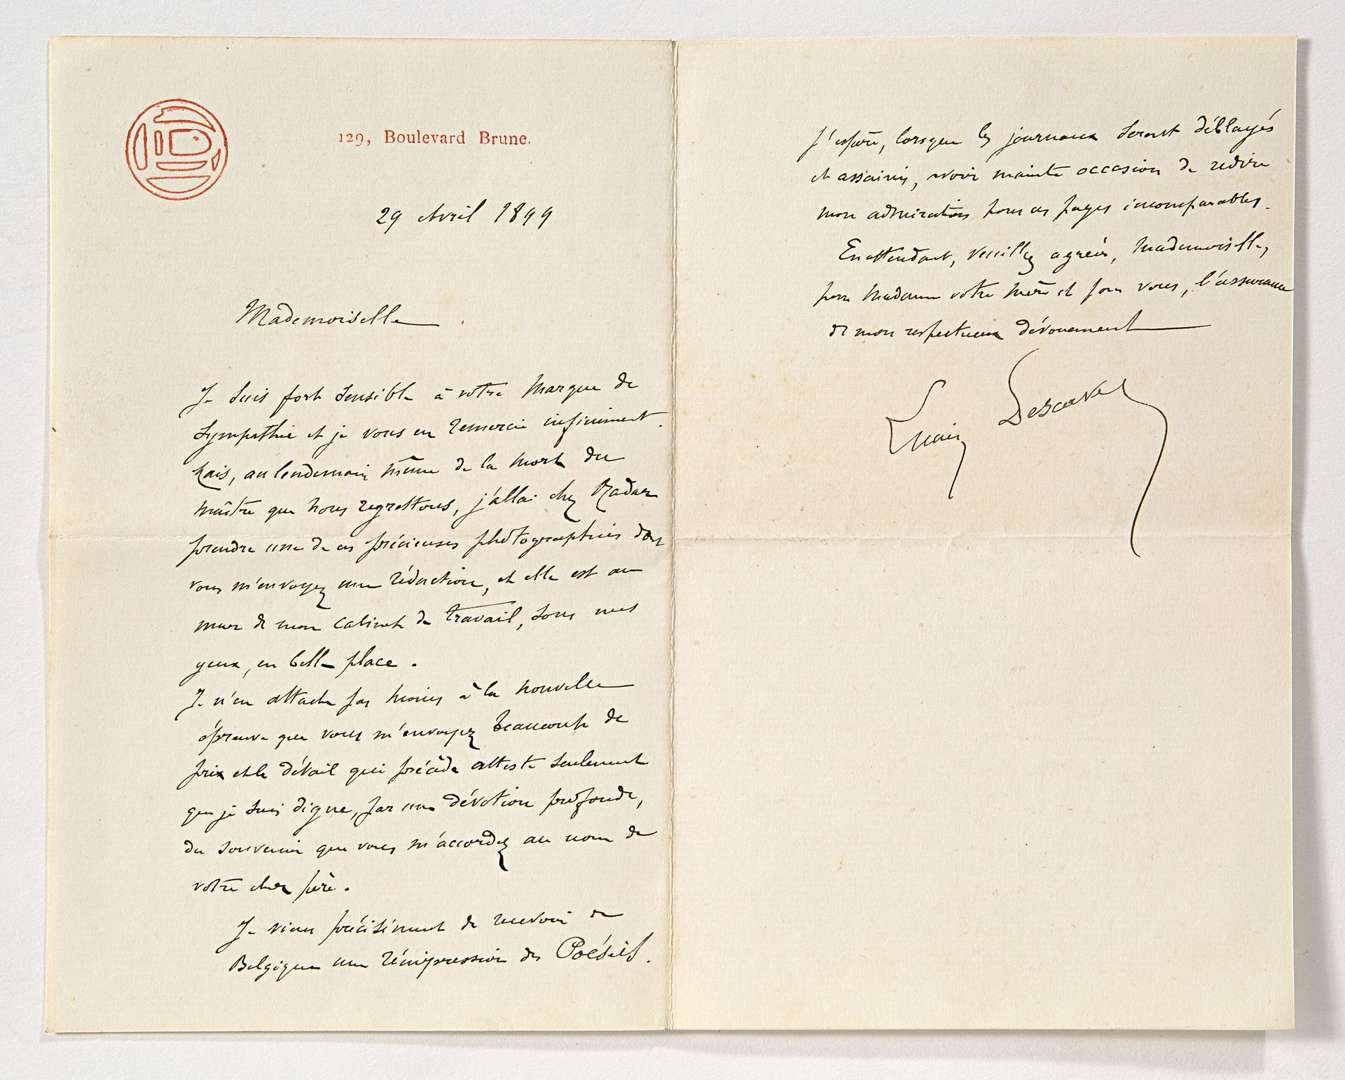 129, Boulevard Brune.
29 Avril 1899
Mademoiselle
Je suis fort sensible à votre marque de
sympathie et je vous en remercie infiniment.
Mais, au lendemain même de la mort du
maître que nous regrettons, j'allai chez Nadar
prendre une de ces précieuses photographies dont
vous m'envoyez une réduction, et elle est au
mur de mon cabinet de travail, sous mes
yeux, en belle place.
Je n'en attache pas moins à la nouvelle
épreuve que vous m'envoyez beaucoup de
prix et le détail qui précède atteste seulement
que je suis digne, par une dévotion profonde,
du souvenir que vous m'accordez au nom de
votre cher père.
Je viens précisément de recevoir de
Belgique une réimpression des Poésies.
J'espère, lorsque les journaux seront déblayés
et assainis, avoir mainte occasion de redire
mon admiration pour ces pages incomparables.
En attendant, veuillez agréer, Mademoiselle,
pour Madame votre mère et pour vous, l'assurance
de mon respectueux dévouement
Lucien Descaves